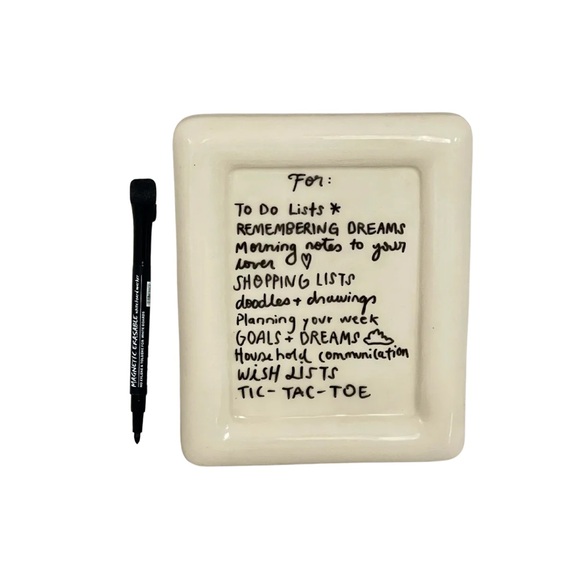 For:
To Do Lists *
REMEMBERING DREAMS
Morning notes to your
lover ♡
SHOPPING LISTS
doodles + drawings
Planning your week
GOALS + DREAMS
Household communication
WISH LISTS
TIC-TAC-TOE
MAGNETIC ERASABLE whiteboard marker